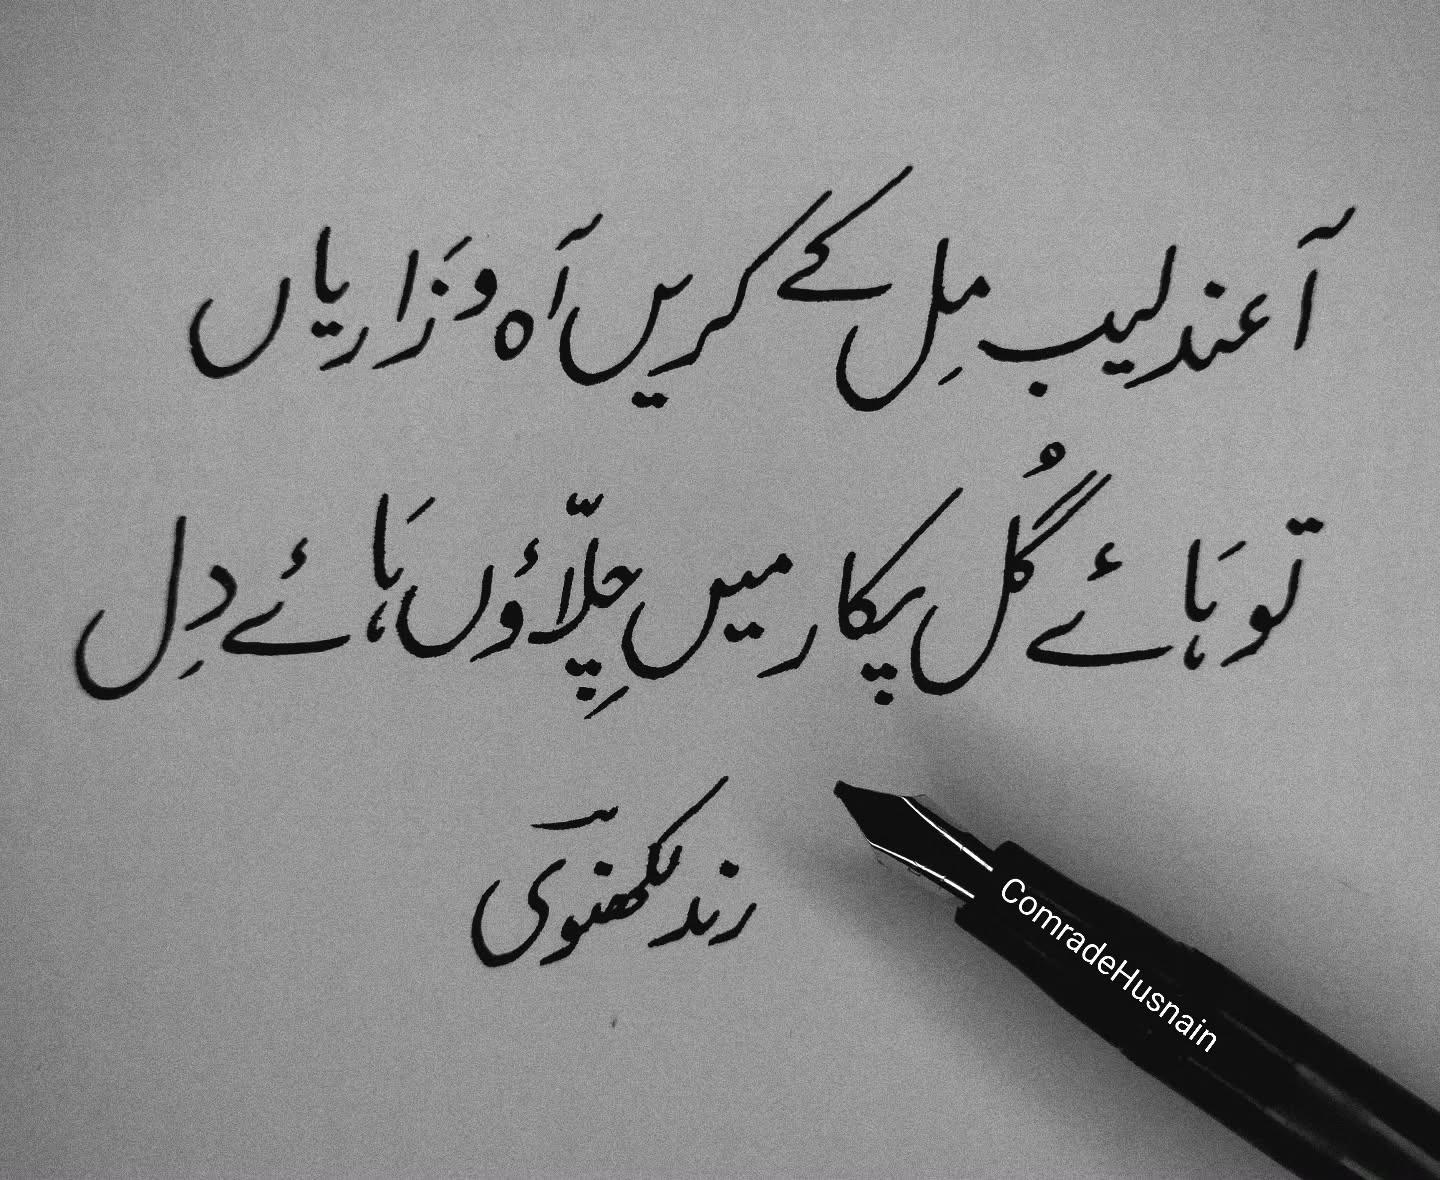 آ عندلیب مِل کے کریں آہ و زَاریاں
تو ہَائے گُل پکار میں چِلّاؤں ہَائے دِل
رند لکھنوی
ComradeHusnain